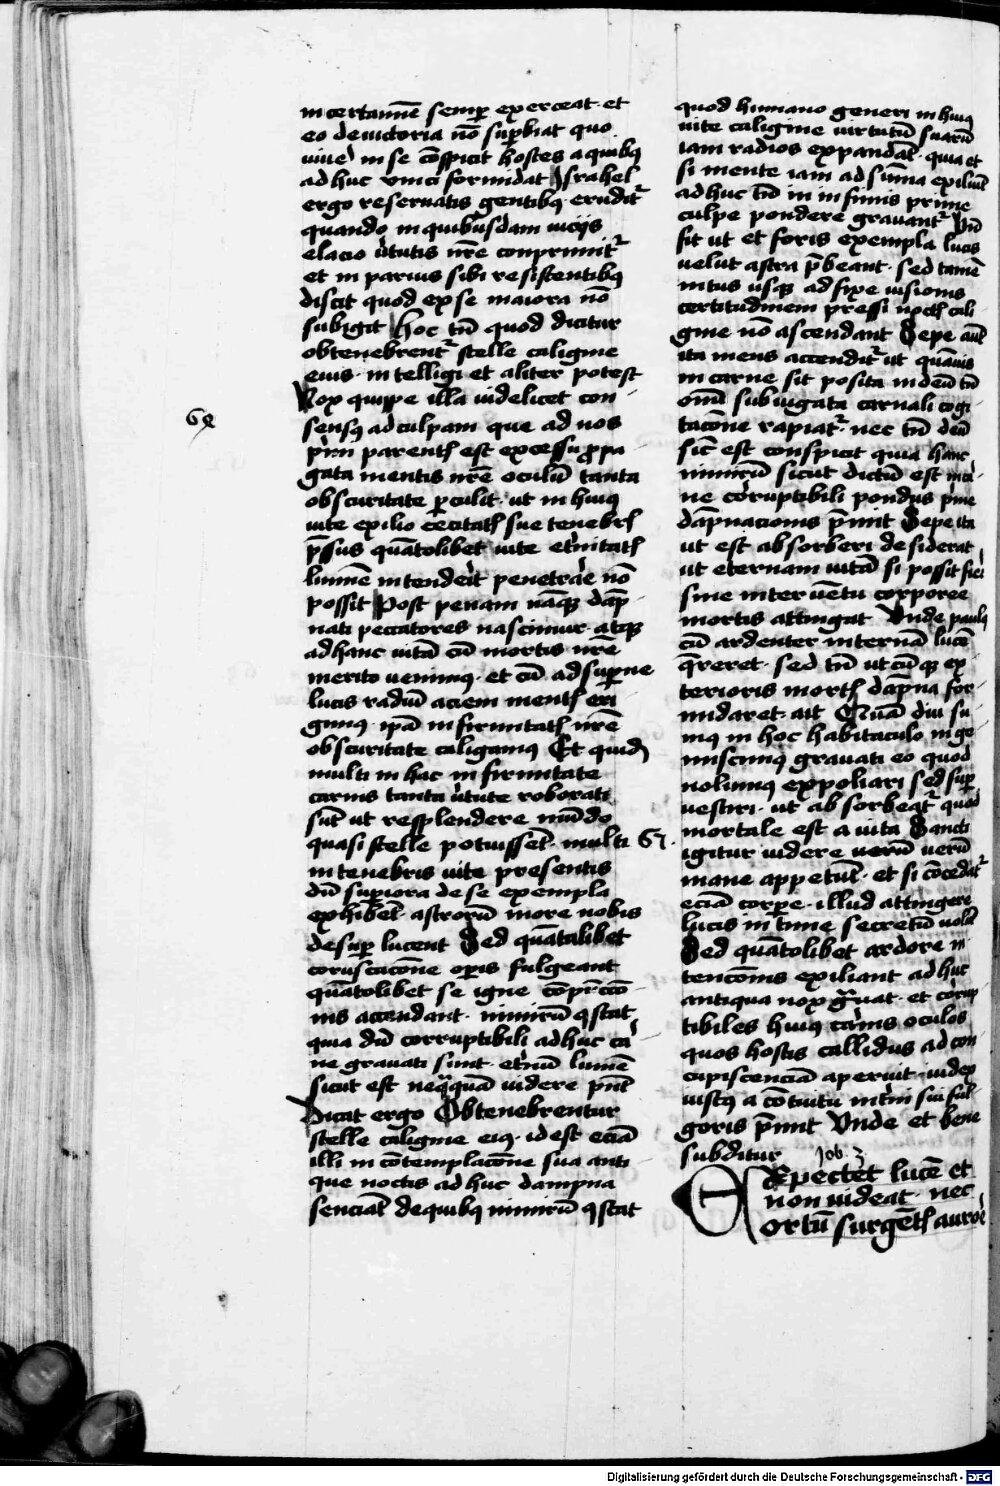 in certamīe semꝑ exerceat et
eo de victoria nō suꝑbiat quo
viuē in se cōspicit hostes a quibꝰ
adhuc vinci formidat Israhel
ergo reseruatis gentibꝰ eruditᷣ
quando in quibusdam vicijs
elacio v̓tutis nr̄e comprimitᷣ
et in paruis sibi resistentibꝰ
discit quod ex se maiora nō
subigit Hoc tn̄ quod dicitur
obtenebrentᷣ stelle caligine
eius intelligi et aliter potest
Nox quippe illa videlicet con
sensꝰ ad culpam que ad nos
pͥmi parentꝭ est excessu propa
gata mentis nr̄e oculū tanta
obscuritate ꝑculit ut in huiꝰ
vite exilio cecitatꝭ sue tenebrꝭ
p̄ssus quātolibet vite et̓nitatꝭ
lumē intenderit penetrare nō
possit Post penam nāqꝫ dāp
nati peccatores nascimur atqꝫ
ad hanc vitā cū mortis nr̄e
merito venimꝰ et cū ad suꝑne
lucis radiū aciem mentꝭ eri
gimꝰ ipā infirmitatꝭ nr̄e
obscuritate caligamꝰ Et quidē
multi in hac infirmitate
carnis tanta v̓tute roborati
sūt ut resplendere mūdo
quasi stelle potuissēt multi
in tenebris vite presentis
dū suꝑiora de se exempla
exhibēt astrorū more nobis
desuꝑ lucent Sed quātalibet
coruscacōne oꝑis fulgeant
quātolibet se igne cōpūccō
nis accendant nimirū ꝯstat
quia dū corruptibili adhuc ca
ne grauati sunt et̓nū lumē
sicut est neq̄quā videre pn̄t
Dicat ergo Obtenebrentur
stelle caligine eiꝰ id est eciā
illi in cōtemplacōne sua anti
que noctis adhuc dampna
senciāt de quibꝰ nimirū ꝯstat
68
67
quod humano generi in huiꝰ
vite caligine virtutū suarū
iam radios expandāt quia et
si mente iam ad sūma exiliūt
adhuc tn̄ in infimis prime
culpe pondere grauantᷣ Vn̄
fit ut et foris exempla lucis
velut astra p̄beant sed tamē
intus usqꝫ ad fixe visionis
certitudinem pressi noctꝭ cali
gine nō ascendant Sepe aūt
ita mens accenditᷣ ut quāuis
in carne sit posita in deū tn̄
om̄i subiugata carnali cogi
tacōne rapiatᷣ nec tn̄ deū
sic̄ est conspicit quia hanc
nimirū sicut dictū est in ca
ne coruptibili pondus p̄me
dāpnacionis p̄mit Sepe ita
ut est absorberi desiderat
ut eternam vitā si possit fieri
sine interuētu corporee
mortis attingat Vnde paulꝰ
cū ardenter internā lucē
q̄reret sed tn̄ utcūqꝫ ex
terioris mortꝭ dāpna for
midaret ait Quā diu su
mꝰ in hoc habitaculo inge
miscimꝰ grauati eo quod
nolimꝰ expoliari sed suꝑ
vestiri ut absorbeatᷣ quod
mortale est a vita Sancti
igitur videre verū verū
mane appetūt et si cōcedatᷣ
eciā corpore illud attingere
lucis intime secretū volūt
Sed quātolibet ardore in
tencōnis exiliant adhuc
antiqua nox g̓uat et corup
tibiles huiꝰ carnis oculos
quos hostis callidus ad con
cupiscenciā aperuit iudex
iustꝰ a cōtuitu int̓ni sui ful
goris p̄mit Vnde et bene
subditur
Job 3
Expectet lucē et
non videat nec
ortū surgētꝭ aurore
Digitalisierung gefördert durch die Deutsche Forschungsgemeinschaft - DFG